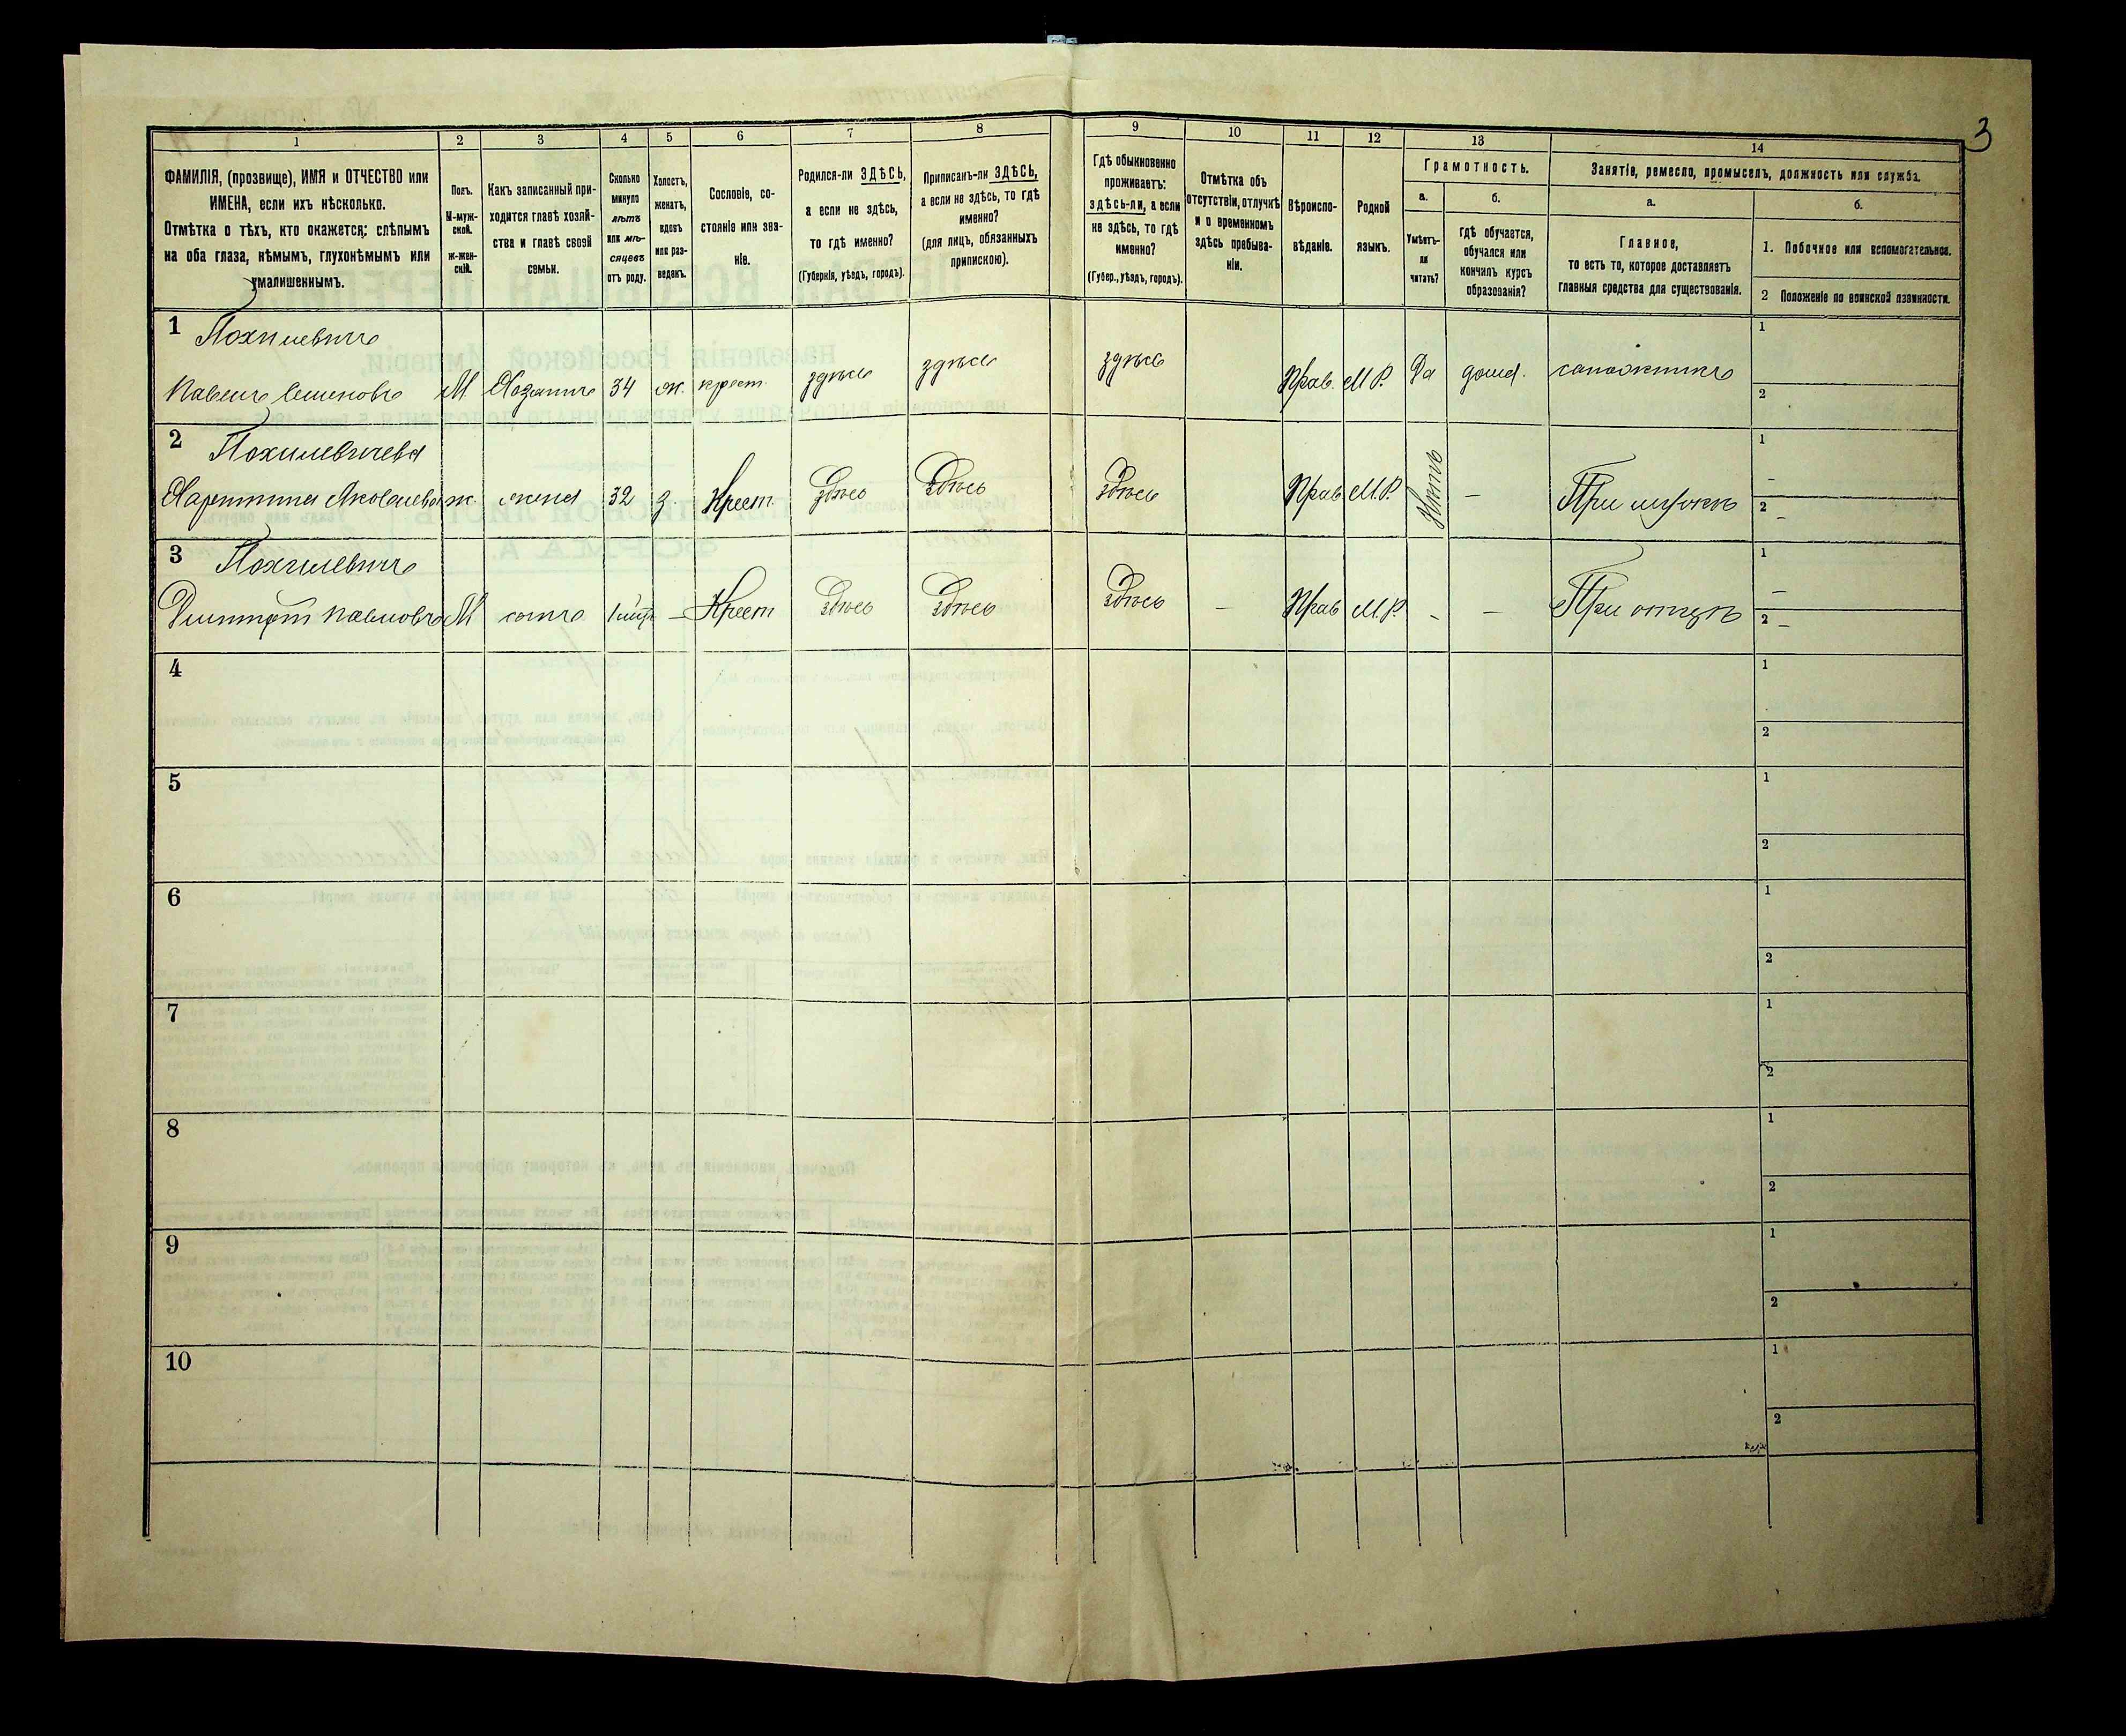 3
1
2
3
4
5
6
7
8
9
10
11
12
13
14
ФАМИЛІЯ, (прозвище), ИМЯ и ОТЧЕСТВО или
ИМЕНА, если ихъ нѣсколько.
Отмѣтка о тѣхъ, кто окажется: слѣпымъ
на оба глаза, нѣмымъ, глухонѣмымъ или
умалишеннымъ.
Полъ.
М-муж-
ской.
Ж-жен-
скій.
Какъ записанный при-
ходится главѣ хозяй-
ства и главѣ своей
семьи.
Сколько
минуло
лѣтъ
или мѣ-
сяцевъ
отъ роду.
Холостъ,
женатъ,
вдовъ
или раз-
веденъ.
Сословіе, со-
стояніе или зва-
ніе.
Родился-ли ЗДѢСЬ,
а если не здѣсь,
то гдѣ именно?
(Губернія, уѣздъ, городъ).
Приписанъ-ли ЗДѢСЬ,
а если не здѣсь, то гдѣ
именно?
(для лицъ, обязанныхъ
припискою).
Гдѣ обыкновенно
проживаетъ:
здѣсь-ли, а если
не здѣсь, то гдѣ
именно?
(Губер., уѣздъ, городъ).
Отмѣтка объ
отсутствіи, отлучкѣ
и о временномъ
здѣсь пребыва-
ніи.
Вѣроиспо-
вѣданіе.
Родной
языкъ.
Грамотность.
а.
Умѣетъ-
ли
читать?
б.
гдѣ обучается,
обучался или
кончилъ курсъ
образованія?
Занятіе, ремесло, промыселъ, должность или служба.
а.
Главное,
то есть то, которое доставляетъ
главныя средства для существованія.
б.
1. Побочное или вспомогательное.
2 Положеніе по воинской повинности.
1 Похилевичъ
Павелъ Семеновъ М Хозяинъ 34 ж. крест. здѣсь здѣсь здѣсь Прав. М.Р. Да дома. сапожникъ 1
2
2 Похилевичева
Харитина Яковлева ж. жена 32 з. Крест. Здѣсь Здѣсь Здѣсь Прав М.Р. Нѣтъ – При мужѣ 1 –
2 –
3 Похилевичъ
Павловъ М сынъ – Крест Здѣсь Здѣсь Здѣсь – Прав М.Р. – – При отцѣ 1 –
2 –
4 1
2
5 1
2
6 1
2
7 1
2
8 1
2
9 1
2
10 1
2